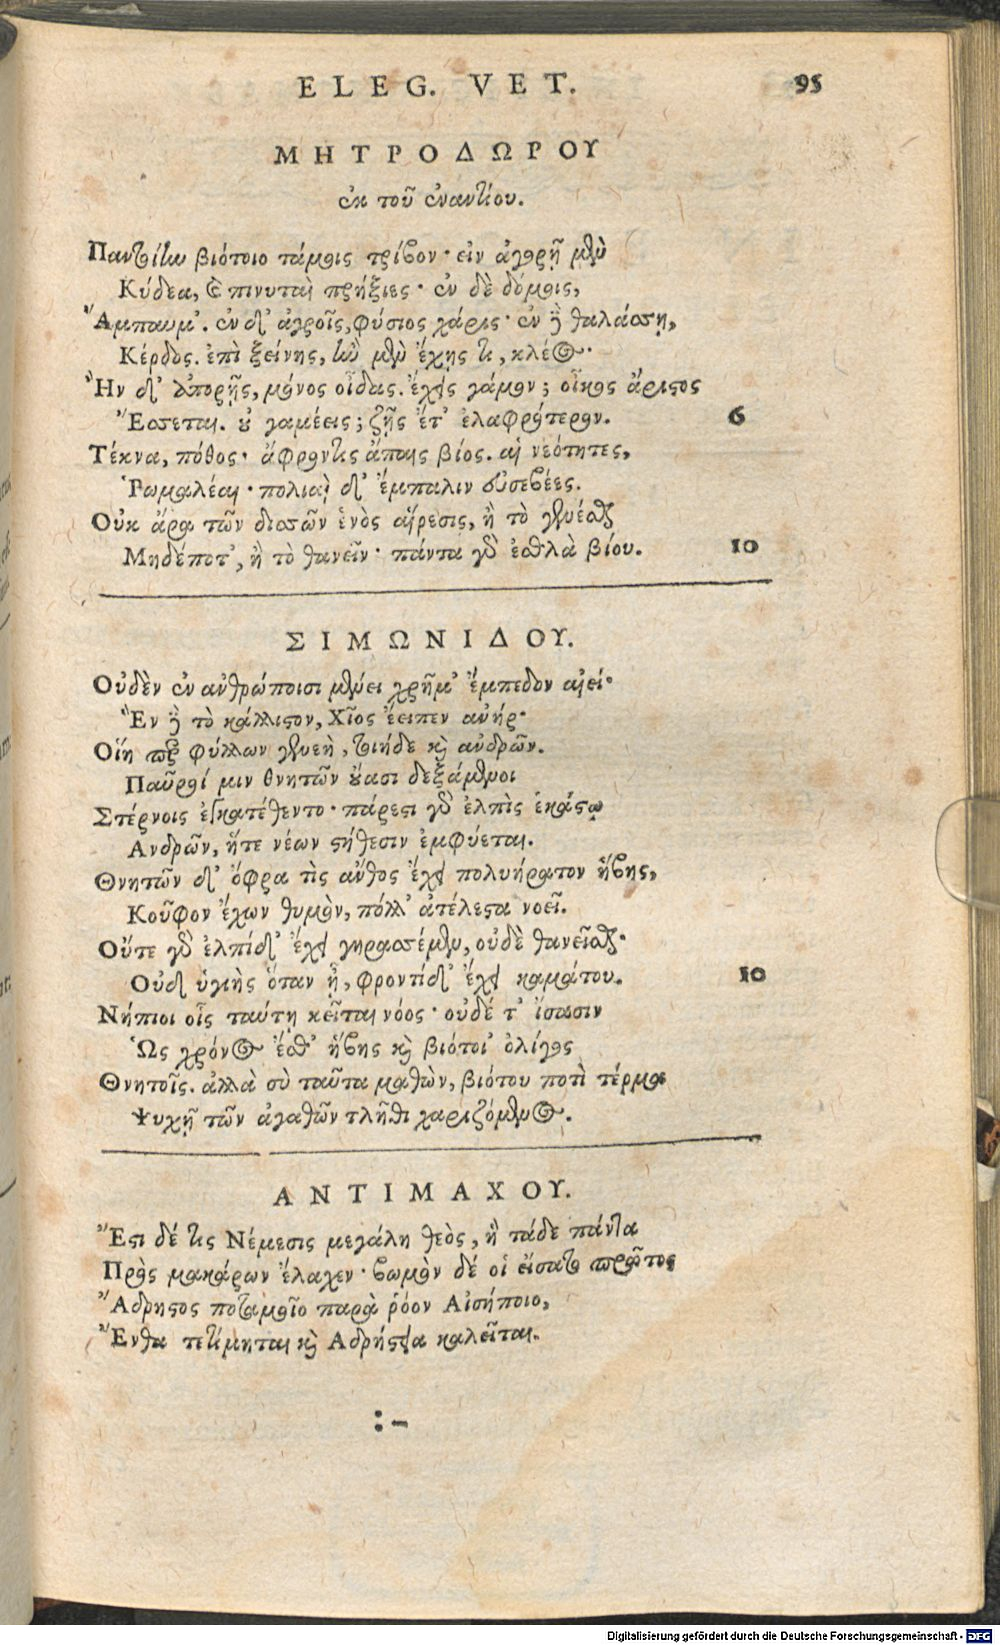 ELEG. VET. 95
ΜΗΤΡΟΔΩΡΟΥ
ἐκ τοῦ ἐναντίου.
Παντοίην βιότοιο τάμοις τρίβον· εἰν ἀγορῇ μὲν
Κύδεα, καὶ πινυταὶ πρήξιες· ἐν δὲ δόμοις,
Ἄμπαυμ'. ἐν δ' ἀγροῖς, φύσιος χάρις· ἐν δὲ θαλάσσῃ,
Κέρδος. ἐπὶ ξείνης, ἢν μὲν ἔχῃς τι, κλέος·
Ἢν δ' ἀπορῇς, μόνος οἶδας. ἔχεις γάμον; οἶκος ἄριστος
Ἔσσεται. οὐ γαμέεις; ζῇς ἔτ' ἐλαφρότερον. 6
Τέκνα, πόθος· ἄφροντις ἄπαις βίος. αἱ νεότητες,
Ῥωμαλέαι· πολιαὶ δ' ἔμπαλιν εὐσεβέες.
Οὐκ ἄρα τῶν δισσῶν ἑνὸς αἵρεσις, ἢ τὸ γενέσθαι
Μηδέποτ', ἢ τὸ θανεῖν· πάντα γὰρ ἐσθλὰ βίου. 10
ΣΙΜΩΝΙΔΟΥ.
Οὐδὲν ἐν ἀνθρώποισι μένει χρῆμ' ἔμπεδον αἰεί·
Ἓν δὲ τὸ κάλλιστον, Χῖος ἔειπεν ἀνήρ·
Οἵη περ φύλλων γενεὴ, τοιήδε καὶ ἀνδρῶν.
Παῦροί μιν θνητῶν οὔασι δεξάμενοι
Στέρνοις ἐγκατέθεντο· πάρεστι γὰρ ἐλπὶς ἑκάστῳ
Ἀνδρῶν, ἥτε νέων στήθεσιν ἐμφύεται.
Θνητῶν δ' ὄφρα τὶς ἄνθος ἔχει πολυήρατον ἥβης,
Κοῦφον ἔχων θυμὸν, πόλλ' ἀτέλεστα νοεῖ.
Οὔτε γὰρ ἐλπίδ' ἔχει γηρασσέμεν, οὐδὲ θανεῖσθαι·
Οὐδ' ὑγιὴς ὅταν ᾖ, φροντίδ' ἔχει καμάτου. 10
Νήπιοι οἷς ταύτῃ κεῖται νόος· οὐδέ τ' ἴσασιν
Ὡς χρόνος ἔσθ' ἥβης καὶ βιότοι' ὀλίγος
Θνητοῖς. ἀλλὰ σὺ ταῦτα μαθὼν, βιότου ποτὶ τέρμα
Ψυχῇ τῶν ἀγαθῶν τλῆθι χαριζόμενος.
ΑΝΤΙΜΑΧΟΥ.
Ἔστι δέ τις Νέμεσις μεγάλη θεὸς, ἣ τάδε πάντα
Πρὸς μακάρων ἔλαχεν· βωμὸν δέ οἱ εἵσατο πρῶτος
Ἄδρηστος ποταμοῖο παρὰ ῥόον Αἰσήποιο,
Ἔνθα τετίμηται καὶ Ἀδρήστεια καλεῖται.
:-
Digitalisierung gefördert durch die Deutsche Forschungsgemeinschaft - DFG